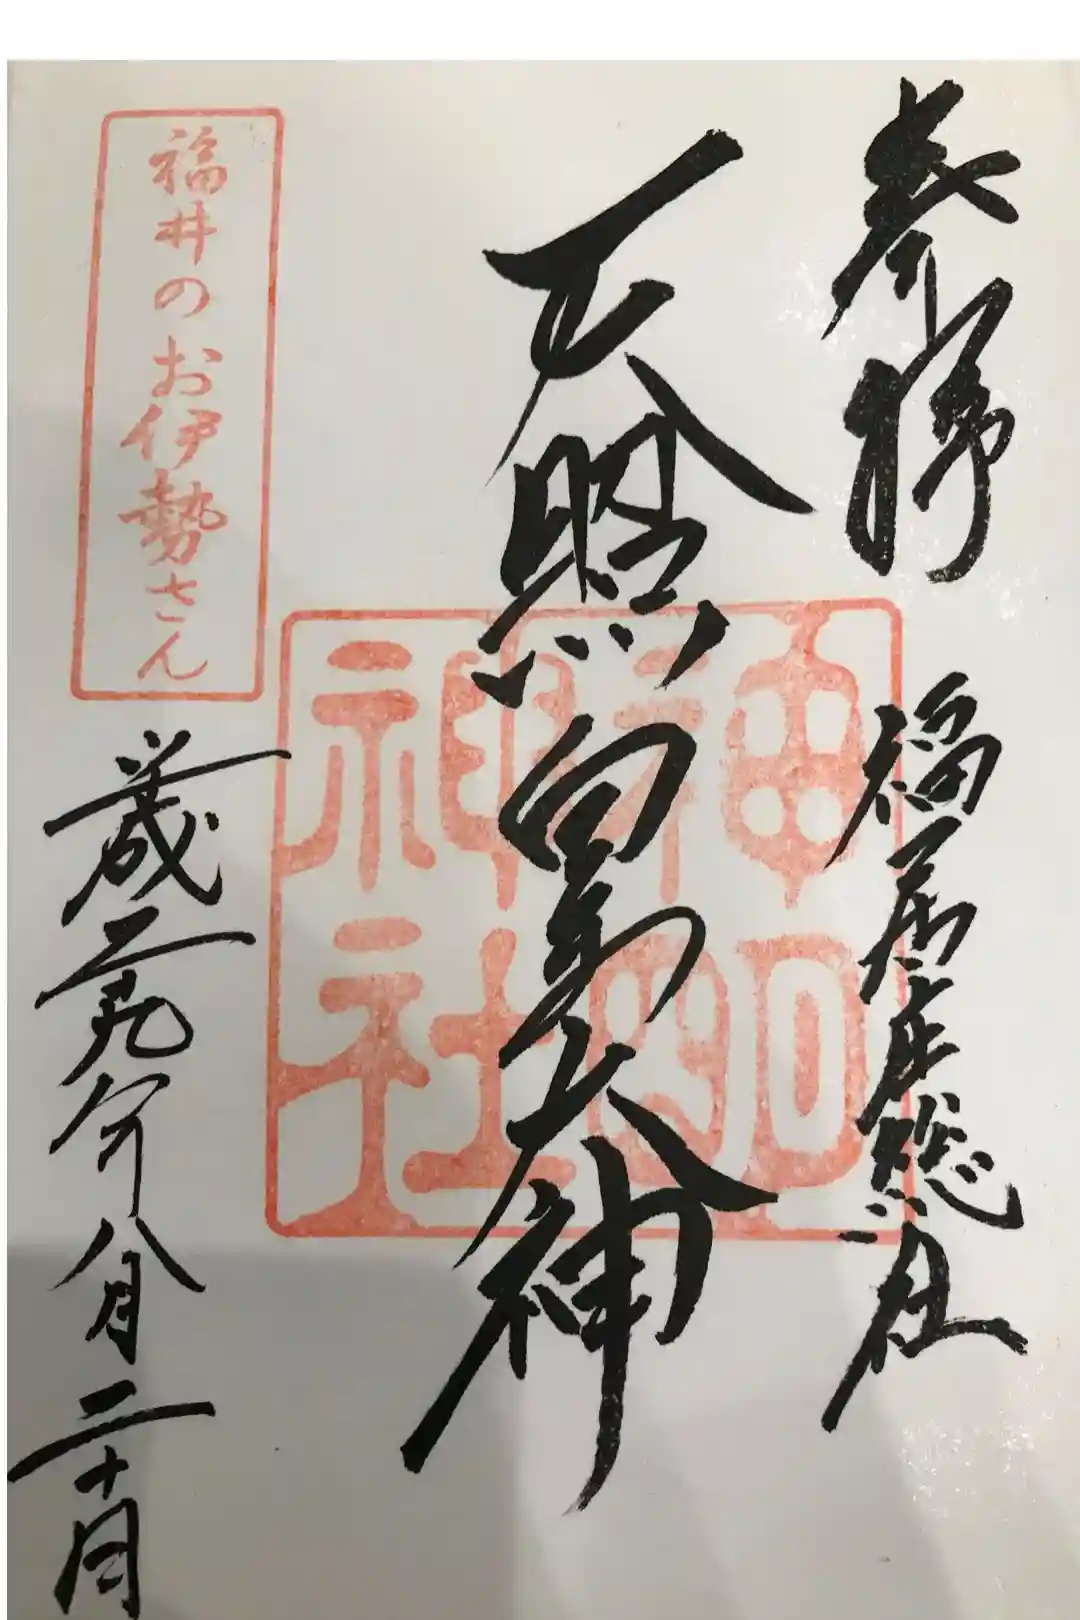 奉拝
福居庄総社
天照皇大神
神明
神社
福井のお伊勢さん
平成二九年八月二十日